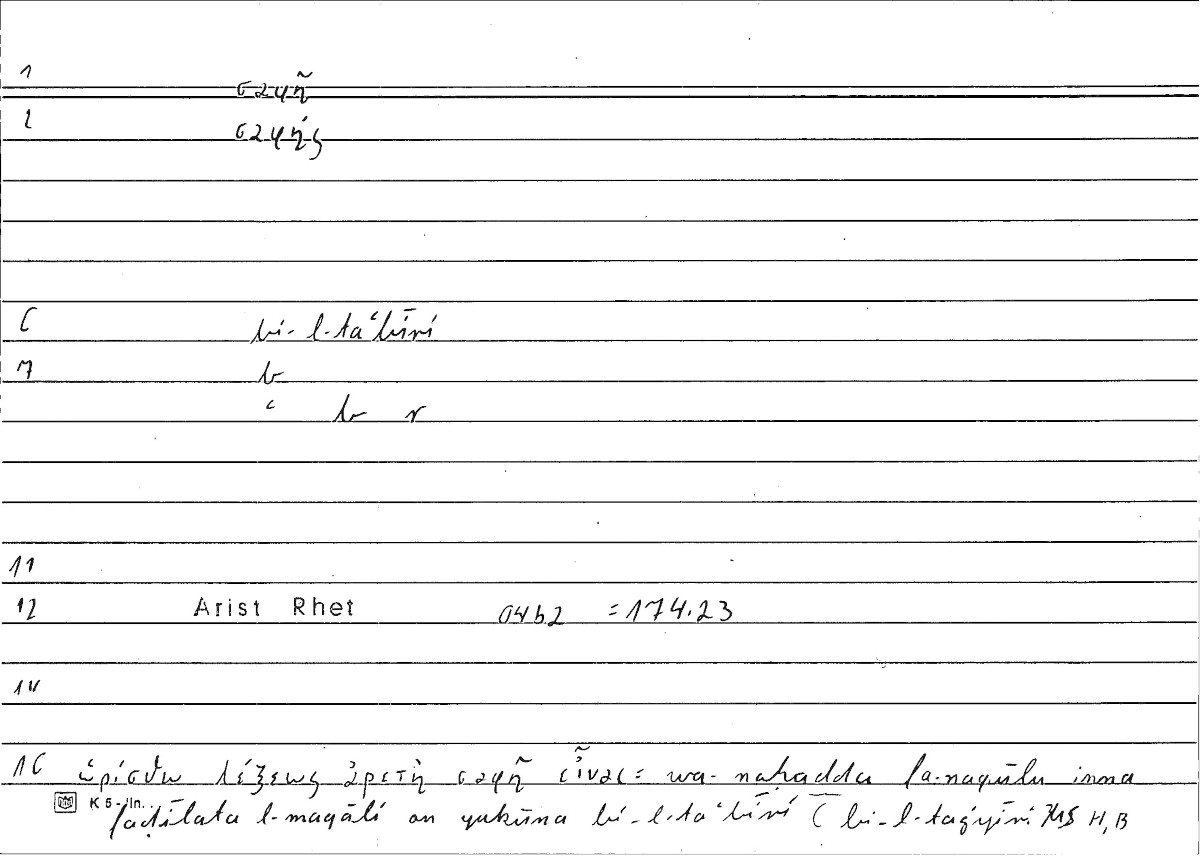 1 σαφῆ
2 σαφής
6 bi-l-taʿbīri
7 b
ʿ b r
11
12 Arist Rhet 04b2 =174.23
14
16 ὡρίσθω λέξεως ἀρετὴ σαφῆ εἶναι = wa-naḥaddu fa-naqūlu inna
K 5 - lin.
faḍīlata l-maqāli an yakūna bi-l-taʿbīri ( bi-l-taġyīri MS H, B